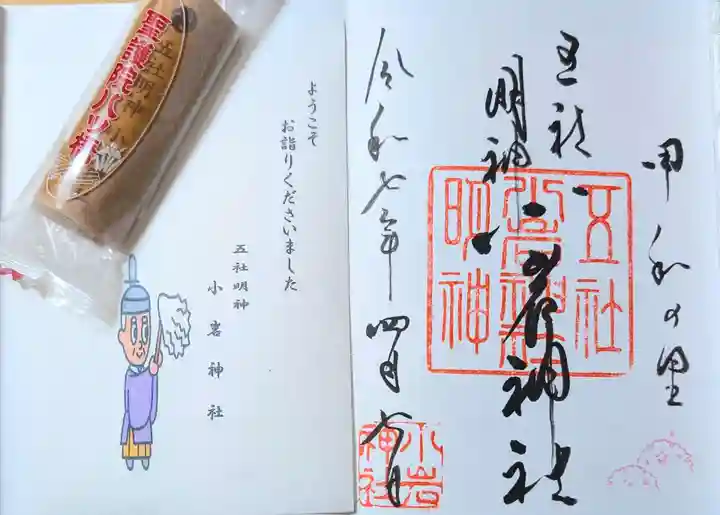 甲和の里
五社
明神
小岩神社
五社
小岩神社
明神
令和七年四月六日
小岩
神社
ようこそ
お詣りくださいました
五社明神
小岩神社
五社明神
聖護院八ツ橋